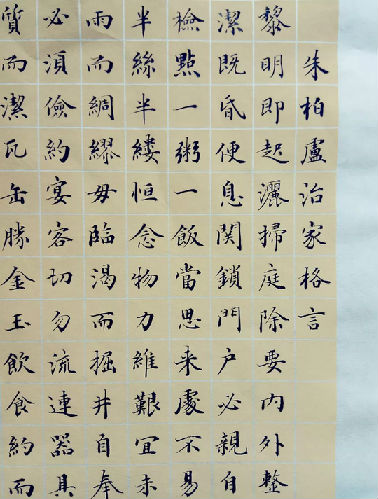 朱柏廬治家格言
黎明即起灑掃庭除要内外整
潔既昏便息関鎖門户必親自
檢點一粥一飯當思来處不易
半絲半縷恒念物力維艱宜未
雨而綢繆毋臨渴而掘井自奉
必須儉約宴客切勿流連器具
質而潔瓦缶勝金玉飲食約而